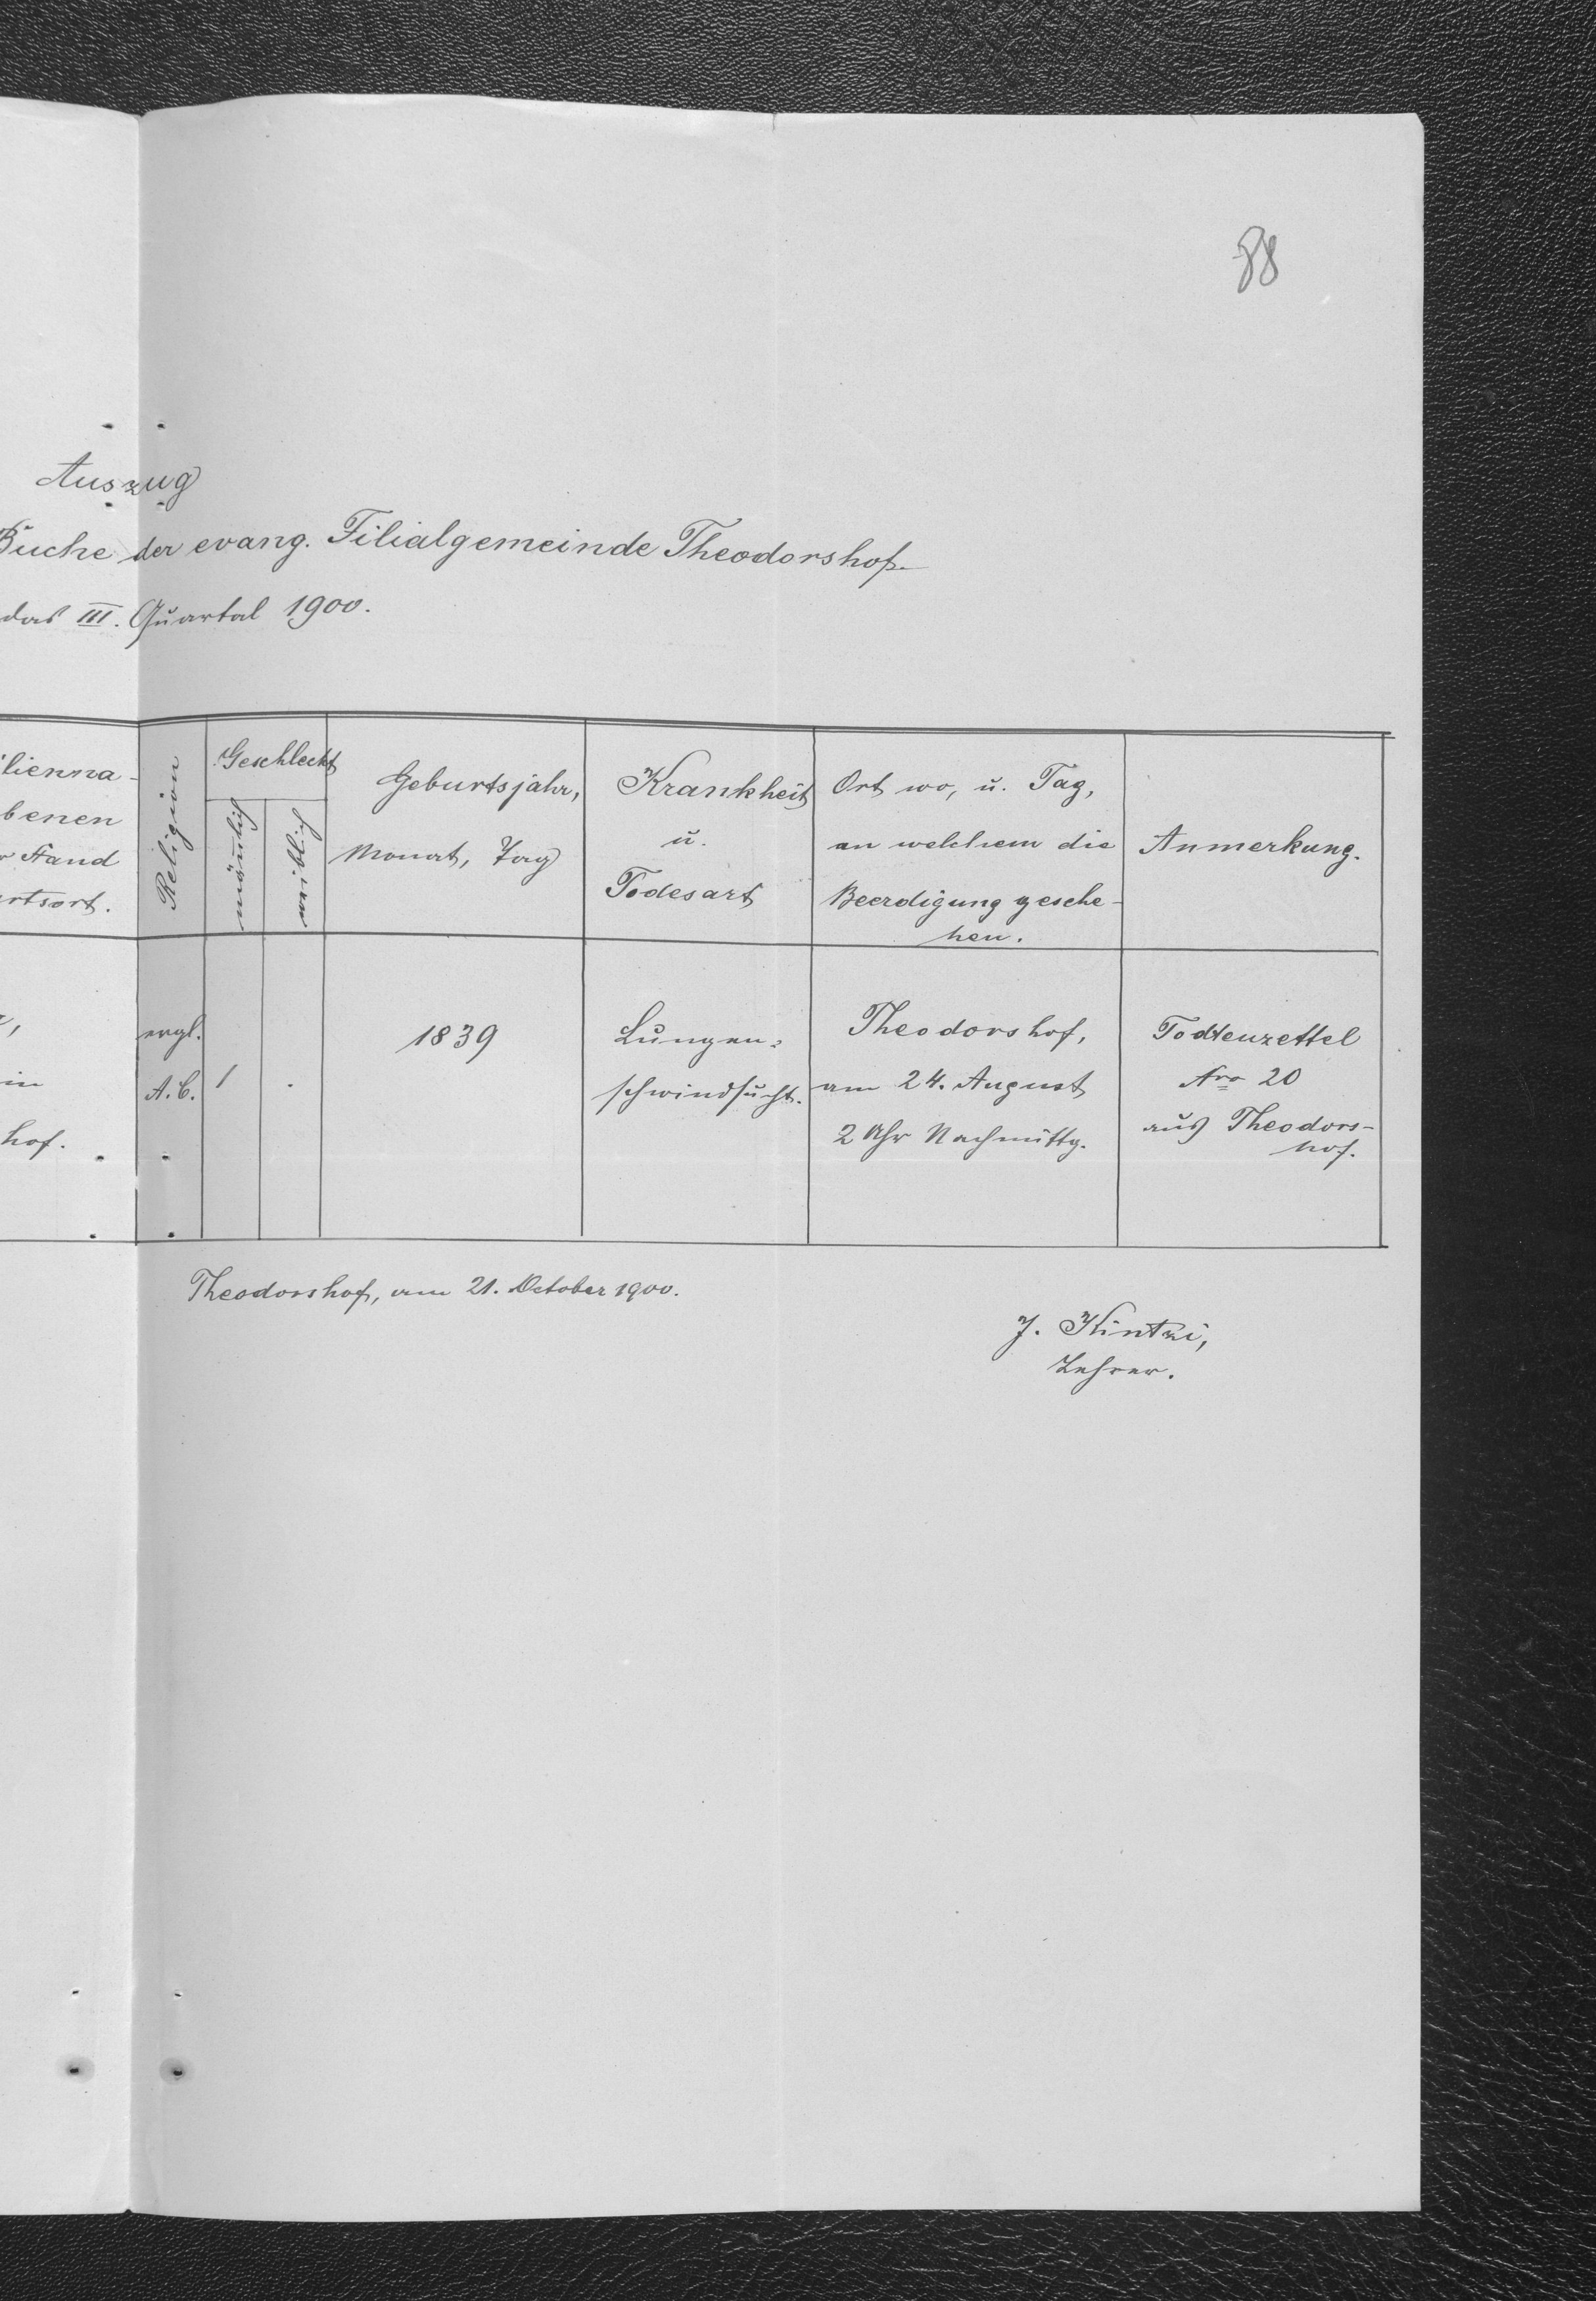 88
Auszug
Buche der evang. Filialgemeinde Theodorshof.
das III. Quartal 1900.
lienna-
benen
Stand
rtsort.
Religion
Geschlecht
männlich
weiblich
Geburtsjahr,
Monat, Tag
Krankheit
u.
Todesart
Ort wo, u. Tag,
an welchem die
Beerdigung gesche-
hen.
Anmerkung.
in
hof.
evgl.
A. C.
1
.
1839
Lungen-
schwindsucht.
Theodorshof,
am 24. August
2 Uhr Nachmittg.
Todtenzettel
Nro 20
aus Theodors-
hof.
Theodorshof, am 21. October 1900.
J. Kintzi,
Lehrer.